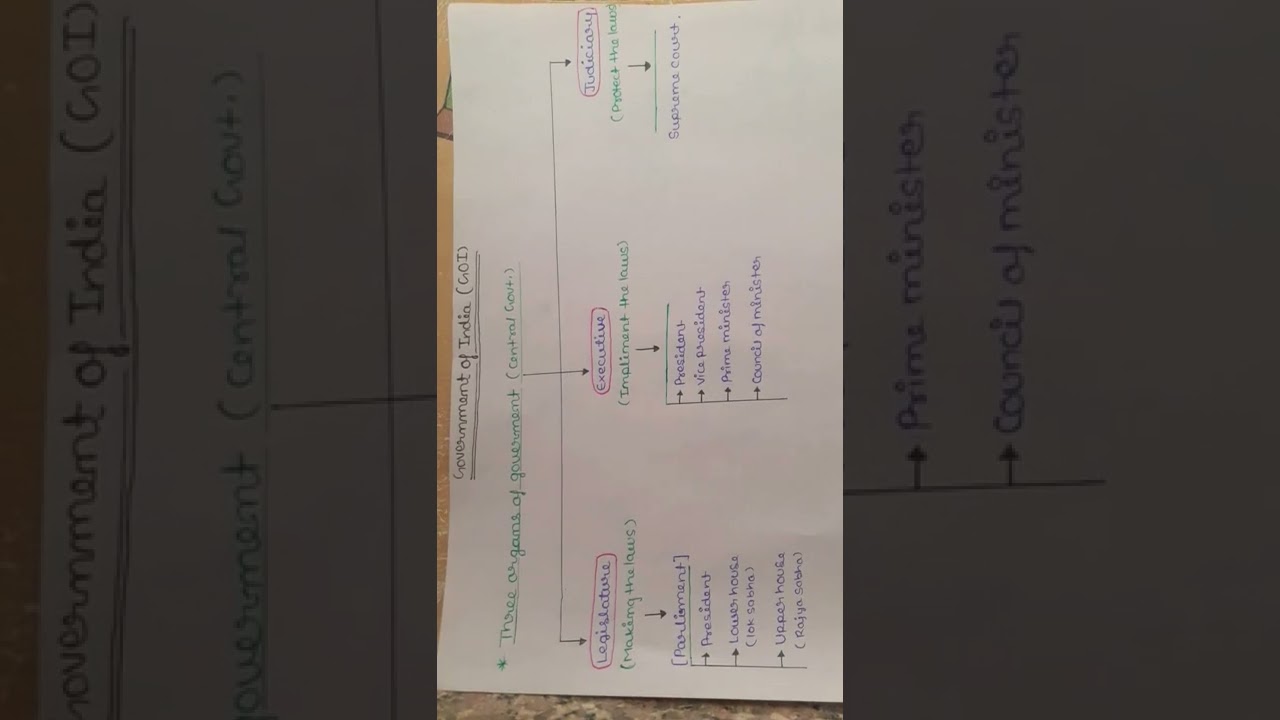 Government of India (GOI)
* Three organs of goverment (Central Govt.)
Legislature
(Making the laws)
[Parliment]
President
Lower house
(lok sabha)
Upper house
(Rajya sabha)
Executive
(Impliment the laws)
President
Vice president
Prime minister
Council of minister
Judiciary
(Protect the laws)
Supreme Court.